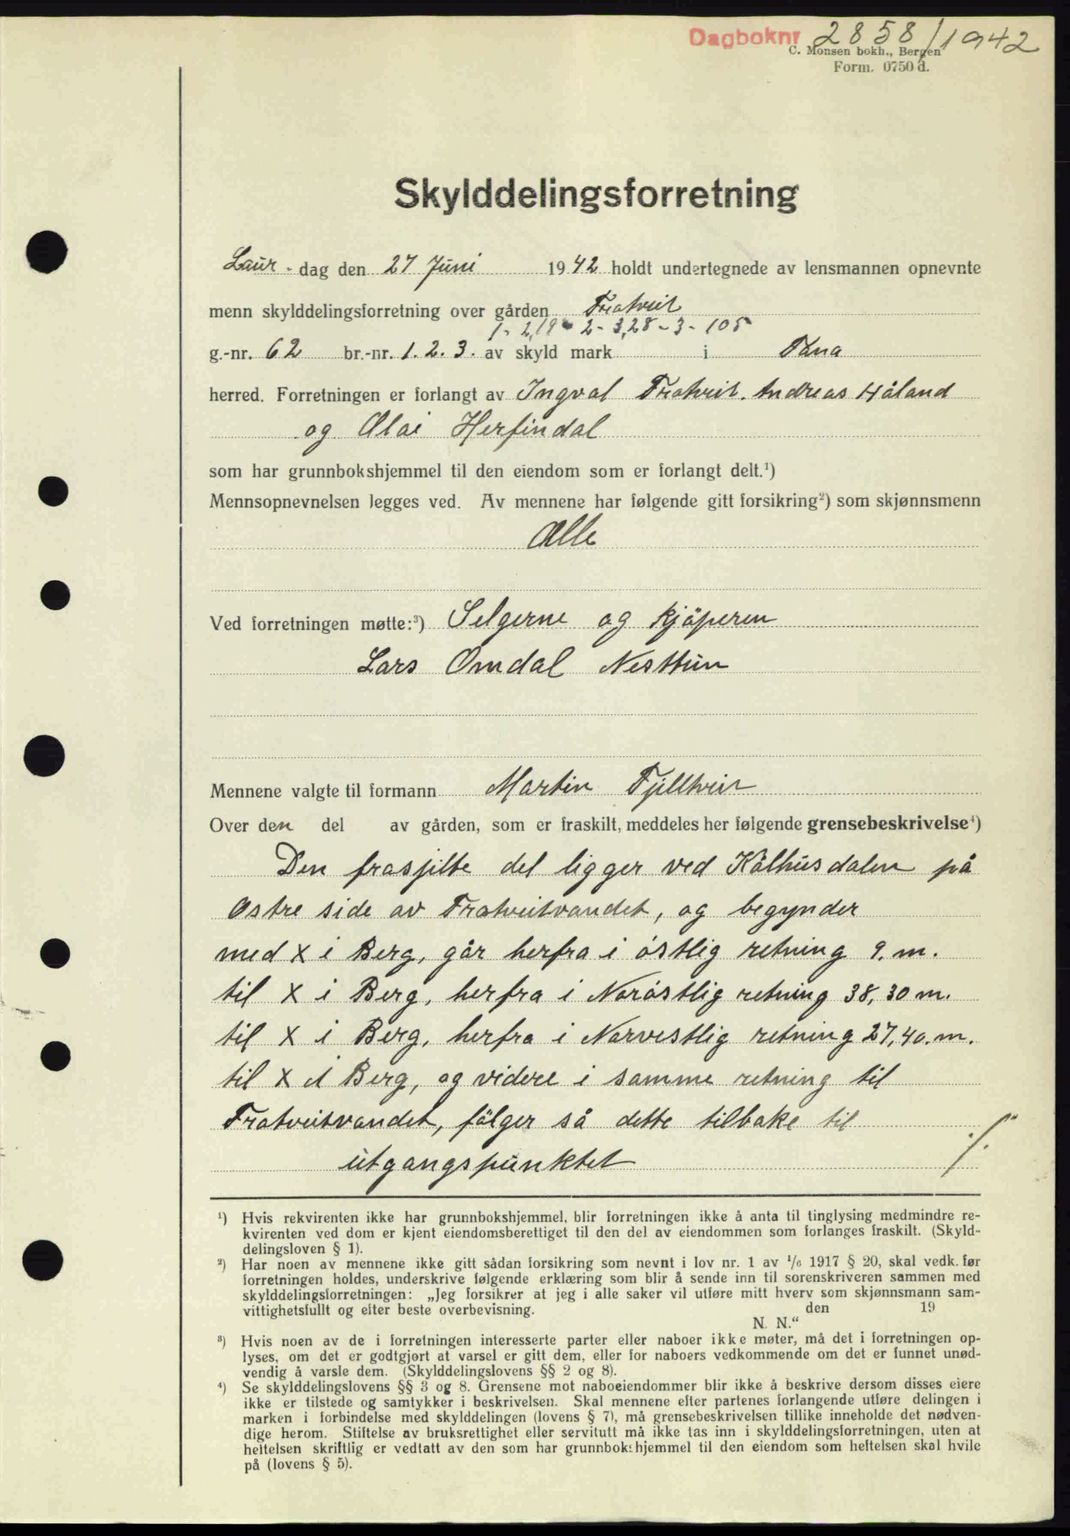 Dagboknr 2858/1942
C. Monsen bokh., Bergen
Form. 0750 d.
Skylddelingsforretning
Laur-dag den 27 Juni 1942 holdt undertegnede av lensmannen opnevnte
menn skylddelingsforretning over gården Fratveit
1- 2,19 - 2- 3,28 - 3- 105
g.-nr. 62 br.-nr. 1. 2. 3. av skyld mark i Fana
herred. Forretningen er forlangt av Ingval Fratveit. Andreas Håland
og Olai Herfindal
som har grunnbokshjemmel til den eiendom som er forlangt delt.¹)
Mennsopnevnelsen legges ved. Av mennene har følgende gitt forsikring²) som skjønnsmenn
Alle
Ved forretningen møtte:³) Selgerne og kjöperen
Lars Omdal Nesttun
Mennene valgte til formann Martin Fjilltveit
Over den del av gården, som er fraskilt, meddeles her følgende grensebeskrivelse⁴)
Den frasjilte del ligger ved Kålhusdalen på
Östre side av Fratveitvandet, og begynder
med X i Berg, går herfra i östlig retning 9. m.
til X i Berg, herfra i Noröstlig retning 38,30 m.
til X i Berg, herfra i Norvestlig retning 27,40. m.
til X i Berg, og videre i samme retning til
Fratveitvandet, fölger så dette tilbake til
utgangspunktet ./.
¹) Hvis rekvirenten ikke har grunnbokshjemmel, blir forretningen ikke å anta til tinglysing medmindre re-
kvirenten ved dom er kjent eiendomsberettiget til den del av eiendommen som forlanges fraskilt. (Skyld-
delingsloven § 1).
²) Har noen av mennene ikke gitt sådan forsikring som nevnt i lov nr. 1 av 1/6 1917 § 20, skal vedk. før
forretningen holdes, underskrive følgende erklæring som blir å sende inn til sorenskriveren sammen med
skylddelingsforretningen: „Jeg forsikrer at jeg i alle saker vil utføre mitt hverv som skjønnsmann sam-
vittighetsfullt og efter beste overbevisning. den 19
N. N.“
³) Hvis noen av de i forretningen interesserte parter eller naboer ikke møter, må det i forretningen op-
lyses, om det er godtgjort at varsel er gitt dem, eller for naboers vedkommende om det er funnet unød-
vendig å varsle dem. (Skylddelingslovens §§ 2 og 8).
⁴) Se skylddelingslovens §§ 3 og 8. Grensene mot naboeiendommer blir ikke å beskrive dersom disses eiere
ikke er tilstede og samtykker i beskrivelsen. Skal mennene efter partenes forlangende utføre delingen i
marken i forbindelse med skylddelingen (lovens § 7), må grensebeskrivelsen tillike inneholde det nødven-
dige herom. Stiftelse av bruksrettighet eller servitutt må ikke tas inn i skylddelingsforretningen, uten at
heftelsen skriftlig er vedtatt av den som har grunnbokshjemmel til den eiendom som heftelsen skal hvile
på (lovens § 5).